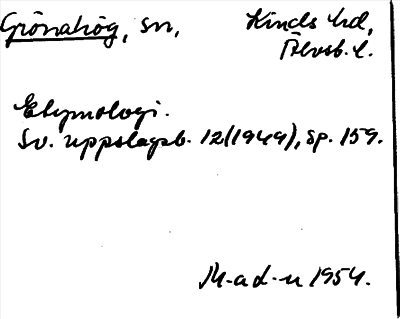 Grönahög, sn,
Kinds hd,
Älvsb. l.
Etymologi.
Sv. uppslagsb. 12(1949), sp. 159.
M-a d-n 1954.